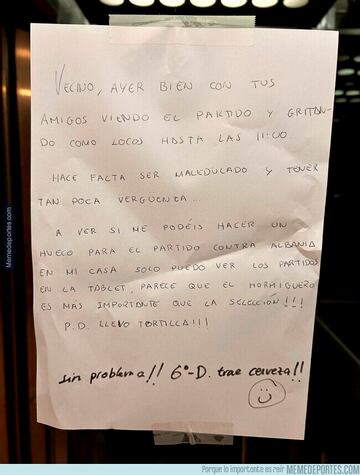 VECINO, AYER BIEN CON TUS
AMIGOS VIENDO EL PARTIDO Y GRITAN-
DO COMO LOCOS HASTA LAS 11:00
HACE FALTA SER MALEDUCADO Y TENER
TAN POCA VERGÜENZA...
A VER SI ME PODÉIS HACER UN
HUECO PARA EL PARTIDO CONTRA ALBANIA
EN MI CASA SOLO PUEDO VER LOS PARTIDOS
EN LA TABLET, PARECE QUE EL HORMIGUERO
ES MÁS IMPORTANTE QUE LA SELECCIÓN!!!
P.D. LLEVO TORTILLA!!!
sin problema!! 6º-D. trae cerveza!!
Memedeportes.com
Porque lo importante es reir MEMEDEPORTES.COM